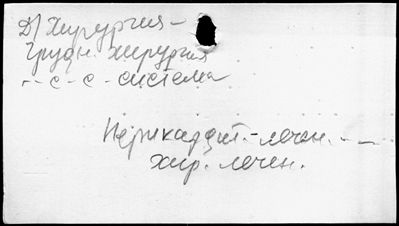 Д) Хирургия –
Грудн. хирургия
– с – с – система
Перикардит. – лечен. – –
хир. лечен.